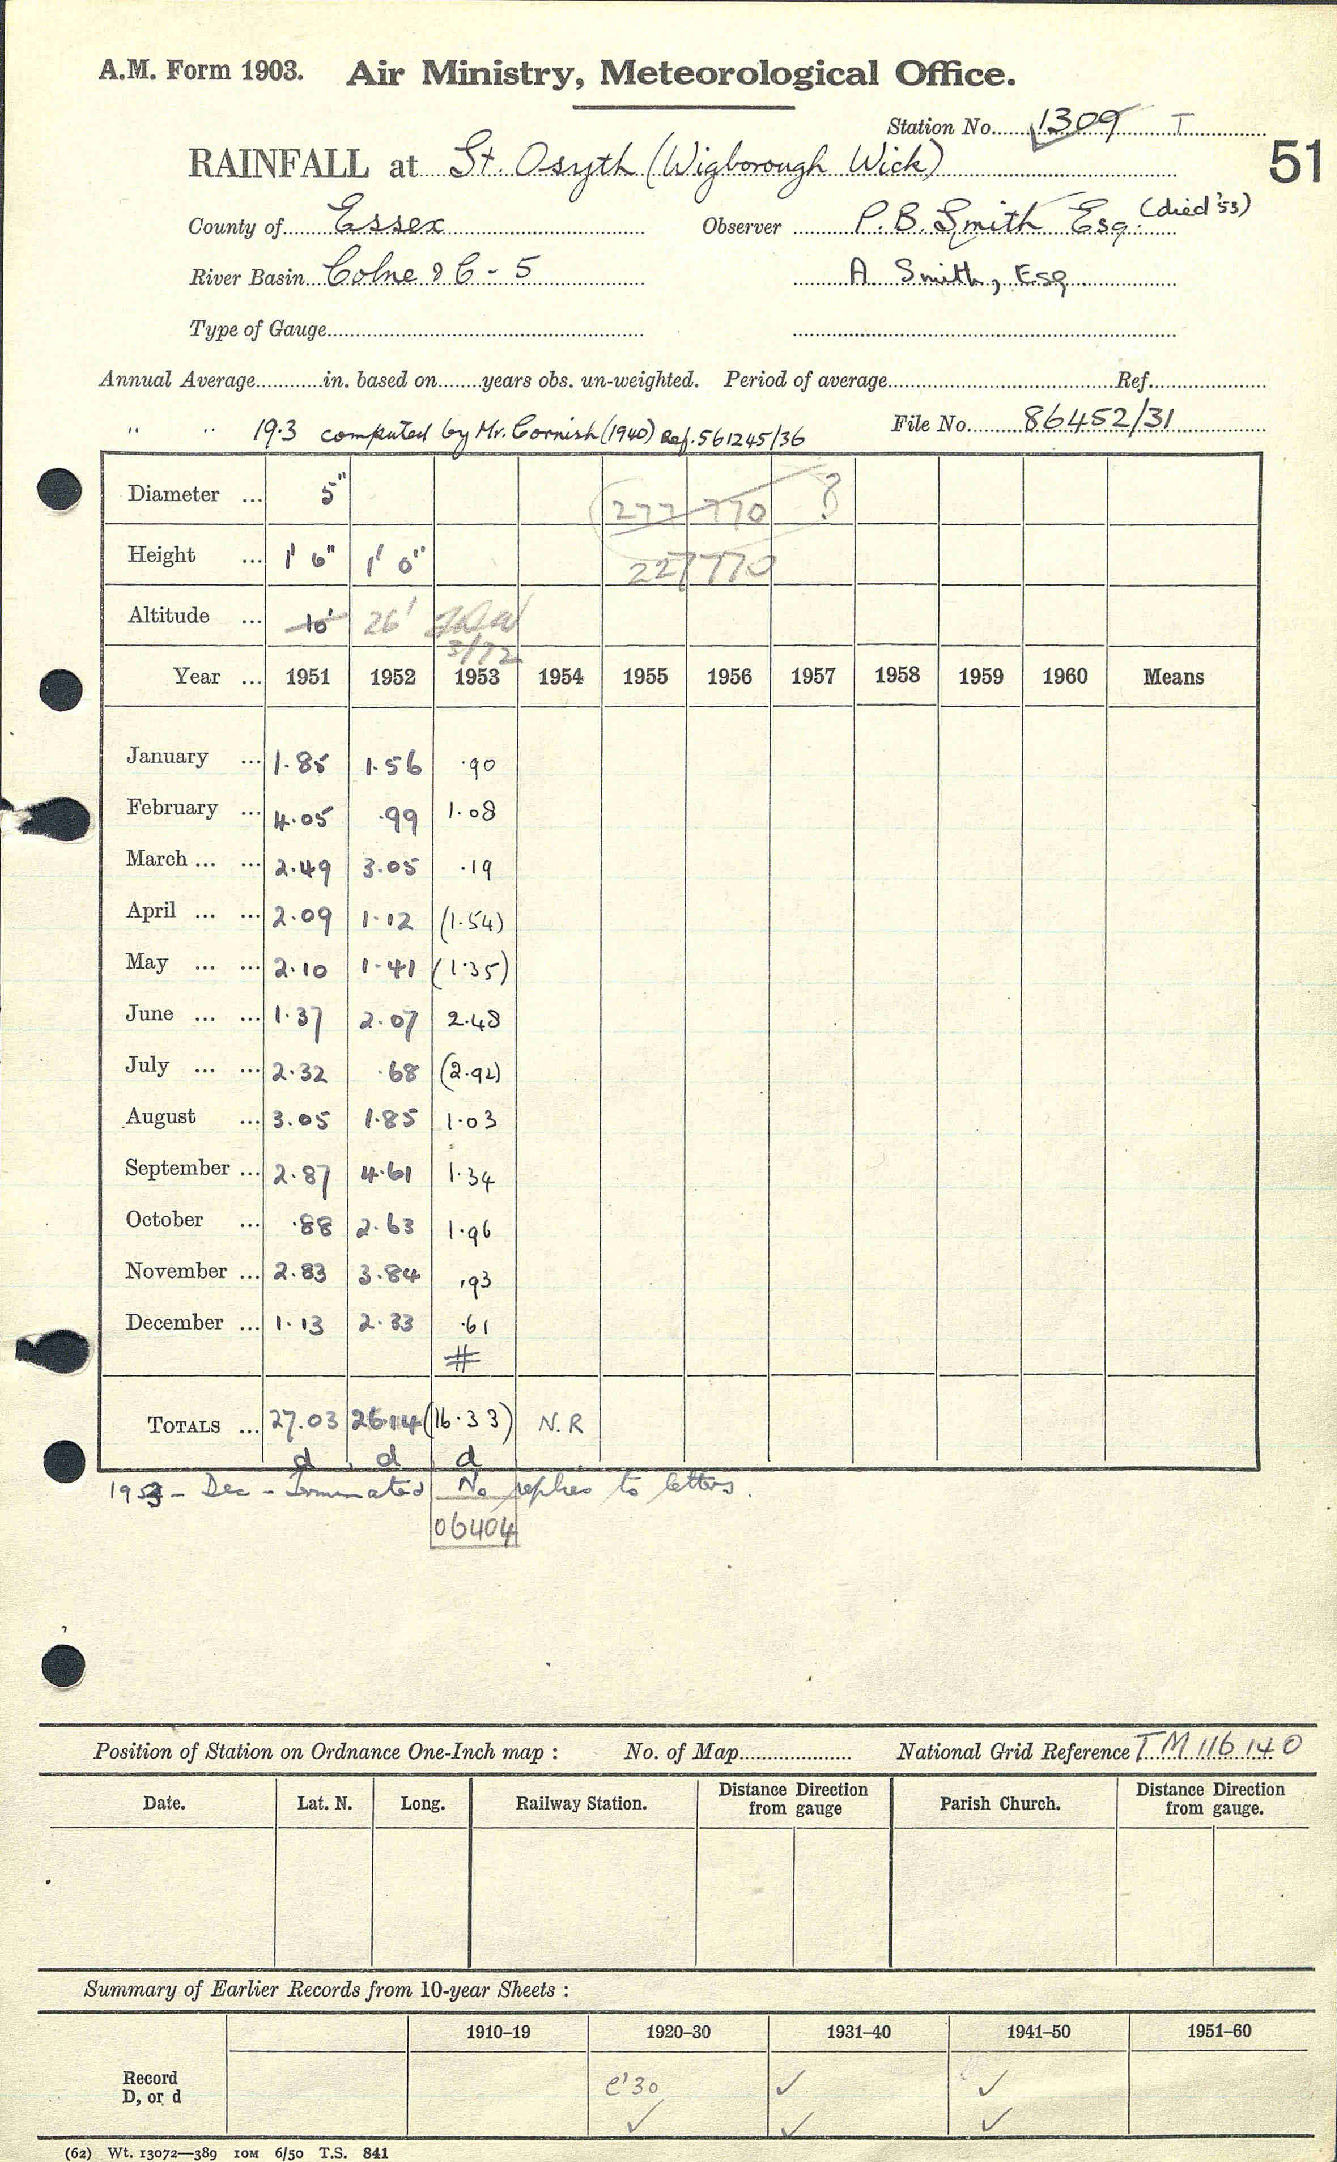 A.M. Form 1903. Air Ministry, Meteorological Office.
Station No. 1309 T
51
RAINFALL at St. Osyth (Wigborough Wick)
County of Essex Observer P.B. Smith Esq. (died '53)
River Basin Colne & C - 5 A Smith, Esq
Type of Gauge
Annual Average in. based on years obs. un-weighted. Period of average Ref.
" " 19.3 computed by Mr. Cornish (1940) Ref. 561245/36 File No. 86452/31
Diameter ... 5" 277 770 ?
Height ... 1' 6" 1' 0" 227770
Altitude ... 10' 26' 3/72
Year ... 1951 1952 1953 1954 1955 1956 1957 1958 1959 1960 Means
January ... 1.85 1.56 .90
February ... 4.05 .99 1.08
March ... ... 2.49 3.05 .19
April ... ... 2.09 1.12 (1.54)
May ... ... 2.10 1.41 (1.35)
June ... ... 1.37 2.07 2.48
July ... ... 2.32 .68 (2.92)
August ... 3.05 1.85 1.03
September ... 2.87 4.61 1.34
October ... .88 2.63 1.96
November ... 2.83 3.84 .93
December ... 1.13 2.33 .61
#
TOTALS ... 27.03 26.14 (16.33) N.R
d d d
1953 - Dec - Terminated No replies to letters.
06404
Position of Station on Ordnance One-Inch map : No. of Map National Grid Reference TM 116 140
Date. Lat. N. Long. Railway Station. Distance Direction from gauge Parish Church. Distance Direction from gauge.
Summary of Earlier Records from 10-year Sheets :
1910–19 1920–30 1931–40 1941–50 1951–60
Record D, or d c'30 ✓ ✓
✓ ✓ ✓
(62) Wt. 13072—389 10M 6/50 T.S. 841